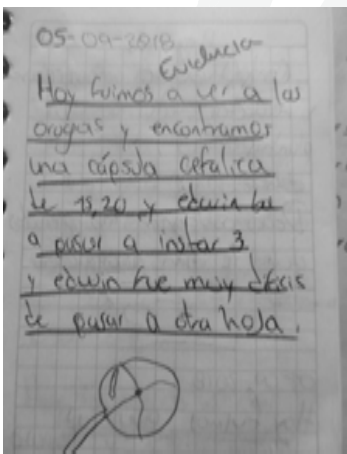 05-09-2018
Evidencia
Hoy fuimos a ver a las
orugas y encontramos
una cápsula cefalica
de 15,20 y edwin
a pasar a instar 3
y edwin fue muy
de pasar a otra hoja.